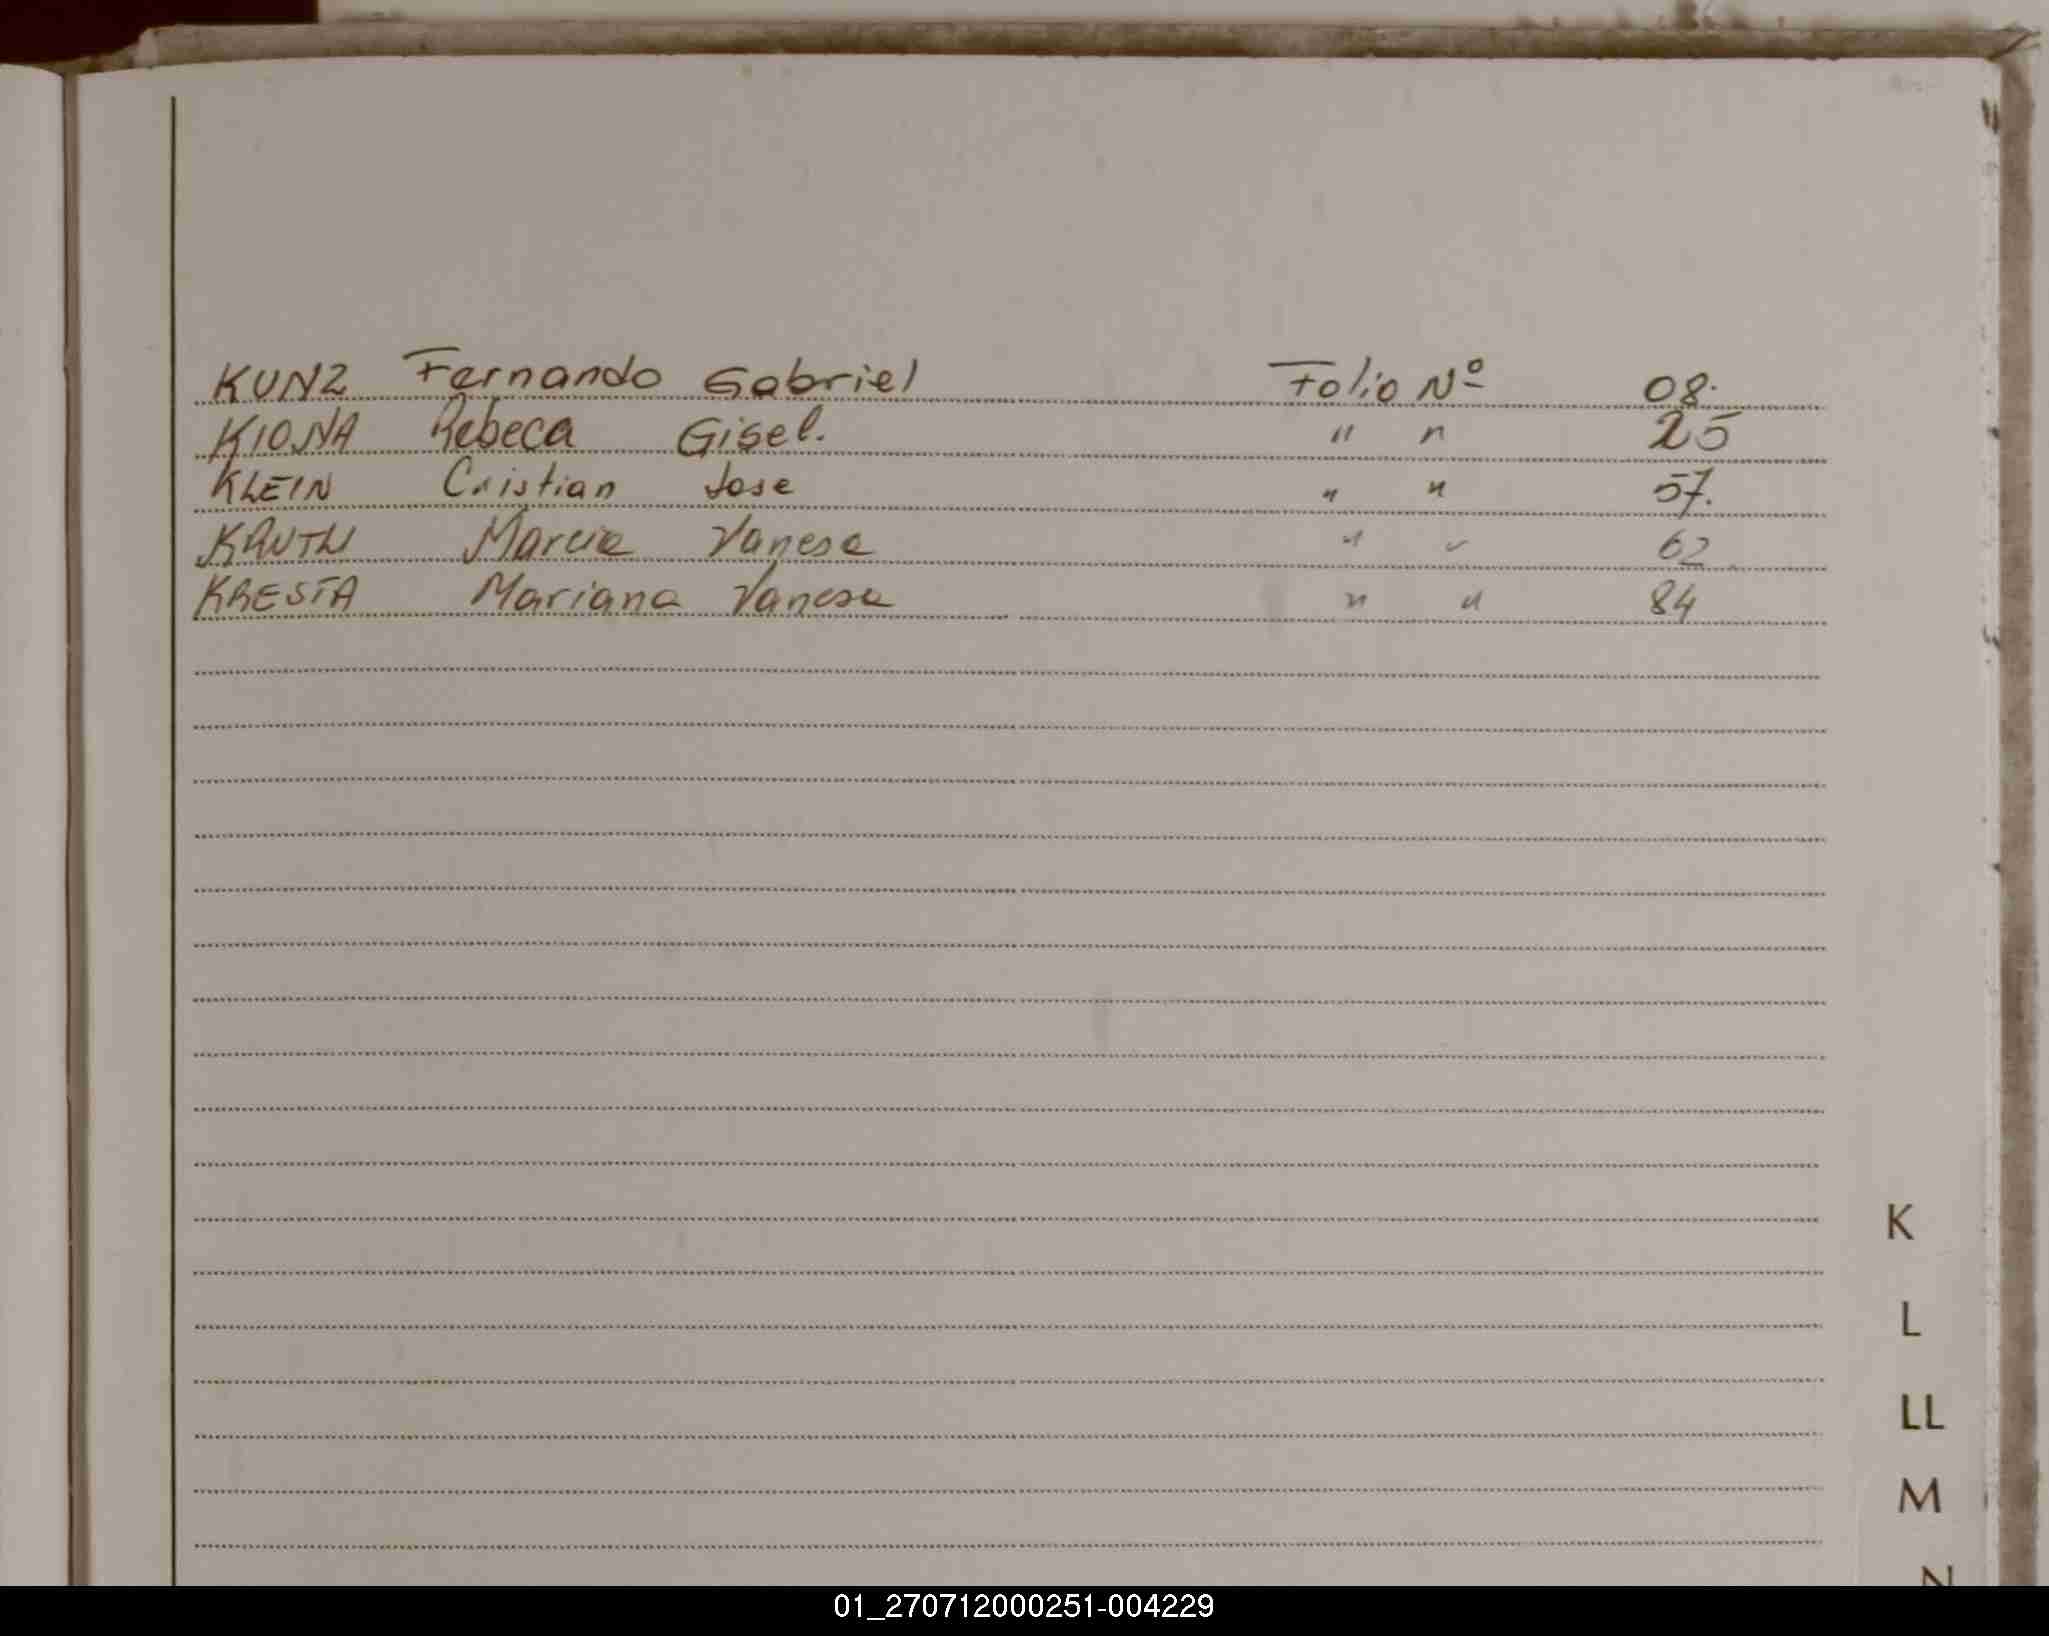 KUNZ Fernando Gabriel Folio Nº 08.
KIONA Rebeca Gisel. " " 25
KLEIN Cristian Jose " " 57.
Marcia Vanesa " " 62
KRESTA Mariana Vanesa " " 84
K
L
LL
M
N
01_270712000251-004229